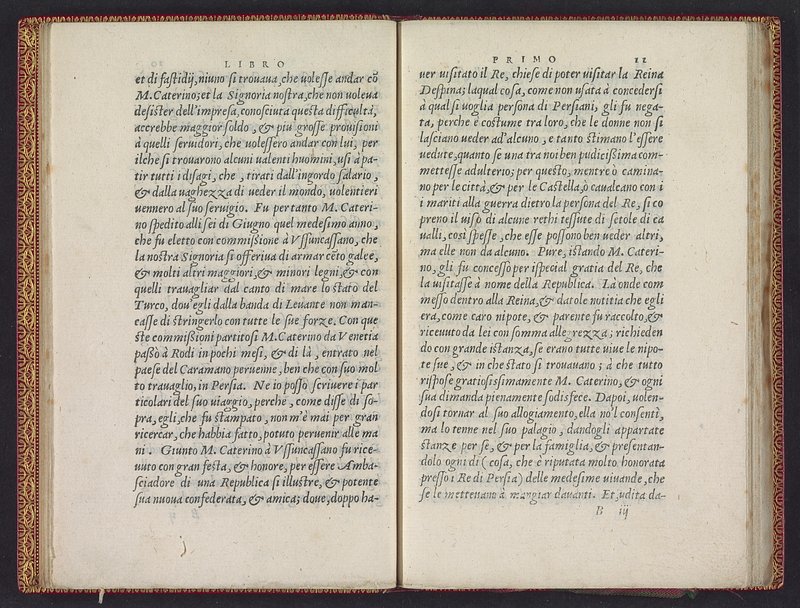 LIBRO
et di fastidij, niuno si trouaua, che uolesse andar cõ
M. Caterino; et la Signoria nostra, che non uoleua
desister dell'impresa, conosciuta questa difficultà,
accrebbe maggior soldo, & piu grosse prouisioni
à quelli seruidori, che uolessero andar con lui, per
ilche si trouarono alcuni ualenti huomini, usi à pa-
tir tutti i disagi, che, tirati dall'ingordo salario,
& dalla uaghezza di ueder il mondo, uolentieri
uennero al suo seruigio. Fu per tanto M. Cateri-
no spedito alli sei di Giugno quel medesimo anno,
che fu eletto con commissione à Vssuncassano, che
la nostra Signoria si offeriua di armar cẽto galee,
& molti altri maggiori, & minori legni, & con
quelli trauagliar dal canto di mare lo stato del
Turco, dou'egli dalla banda di Leuante non man-
casse di stringerlo con tutte le sue forze. Con que
ste commissioni partitosi M. Caterino da Venetia
passò à Rodi in pochi mesi, & di là, entrato nel
paese del Caramano peruenne, ben che con suo mol
to trauaglio, in Persia. Ne io posso scriuere i par
ticolari del suo uiaggio, perche, come disse di so-
pra, egli, che fu stampato, non m'è mai per gran
ricercar, che habbia fatto, potuto peruenir alle ma
ni. Giunto M. Caterino à Vssuncassano fu rice-
uuto con gran festa, & honore, per essere Amba-
sciadore di una Republica sì illustre, & potente
sua nuoua confederata, & amica; doue, doppo ha-
PRIMO 11
uer uisitato il Re, chiese di poter uisitar la Reina
Despina; laqual cosa, come non usata à concedersi
à qual si uoglia persona di Persiani, gli fu nega-
ta, perche è costume tra loro, che le donne non si
lasciano ueder ad'alcuno, e tanto stimano l'essere
uedute, quanto se una tra noi ben pudicissima com-
mettesse adulterio; per questo, mentre ò camina-
no per le città, & per le Castella, ò caualcano con i
i mariti alla guerra dietro la persona del Re, si co
preno il uiso di alcune rethi tessute di setole di ca
ualli, così spesse, che esse possono ben ueder altri,
ma elle non da alcuno. Pure, istando M. Cateri-
no, gli fu concesso per ispecial gratia del Re, che
la uisitasse à nome della Republica. Là onde com
messo dentro alla Reina, & datole notitia che egli
era, come caro nipote, & parente fu raccolto, &
riceuuto da lei con somma allegrezza; richieden
do con grande istanza, se erano tutte uiue le nipo-
te sue, & in che stato si trouauano; à che tutto
rispose gratiosissimamente M. Caterino, & ogni
sua dimanda pienamente sodisfece. Dapoi, uolen-
dosi tornar al suo allogiamento, ella nol consentì,
ma lo tenne nel suo palagio, dandogli appartate
stanze per se, & per la famiglia, & presentan-
dolo ogni dì (cosa, che è riputata molto honorata
presso i Re di Persia) delle medesime uiuande, che
se le metteuano à mangiar dauanti. Et, udita da-
B iij